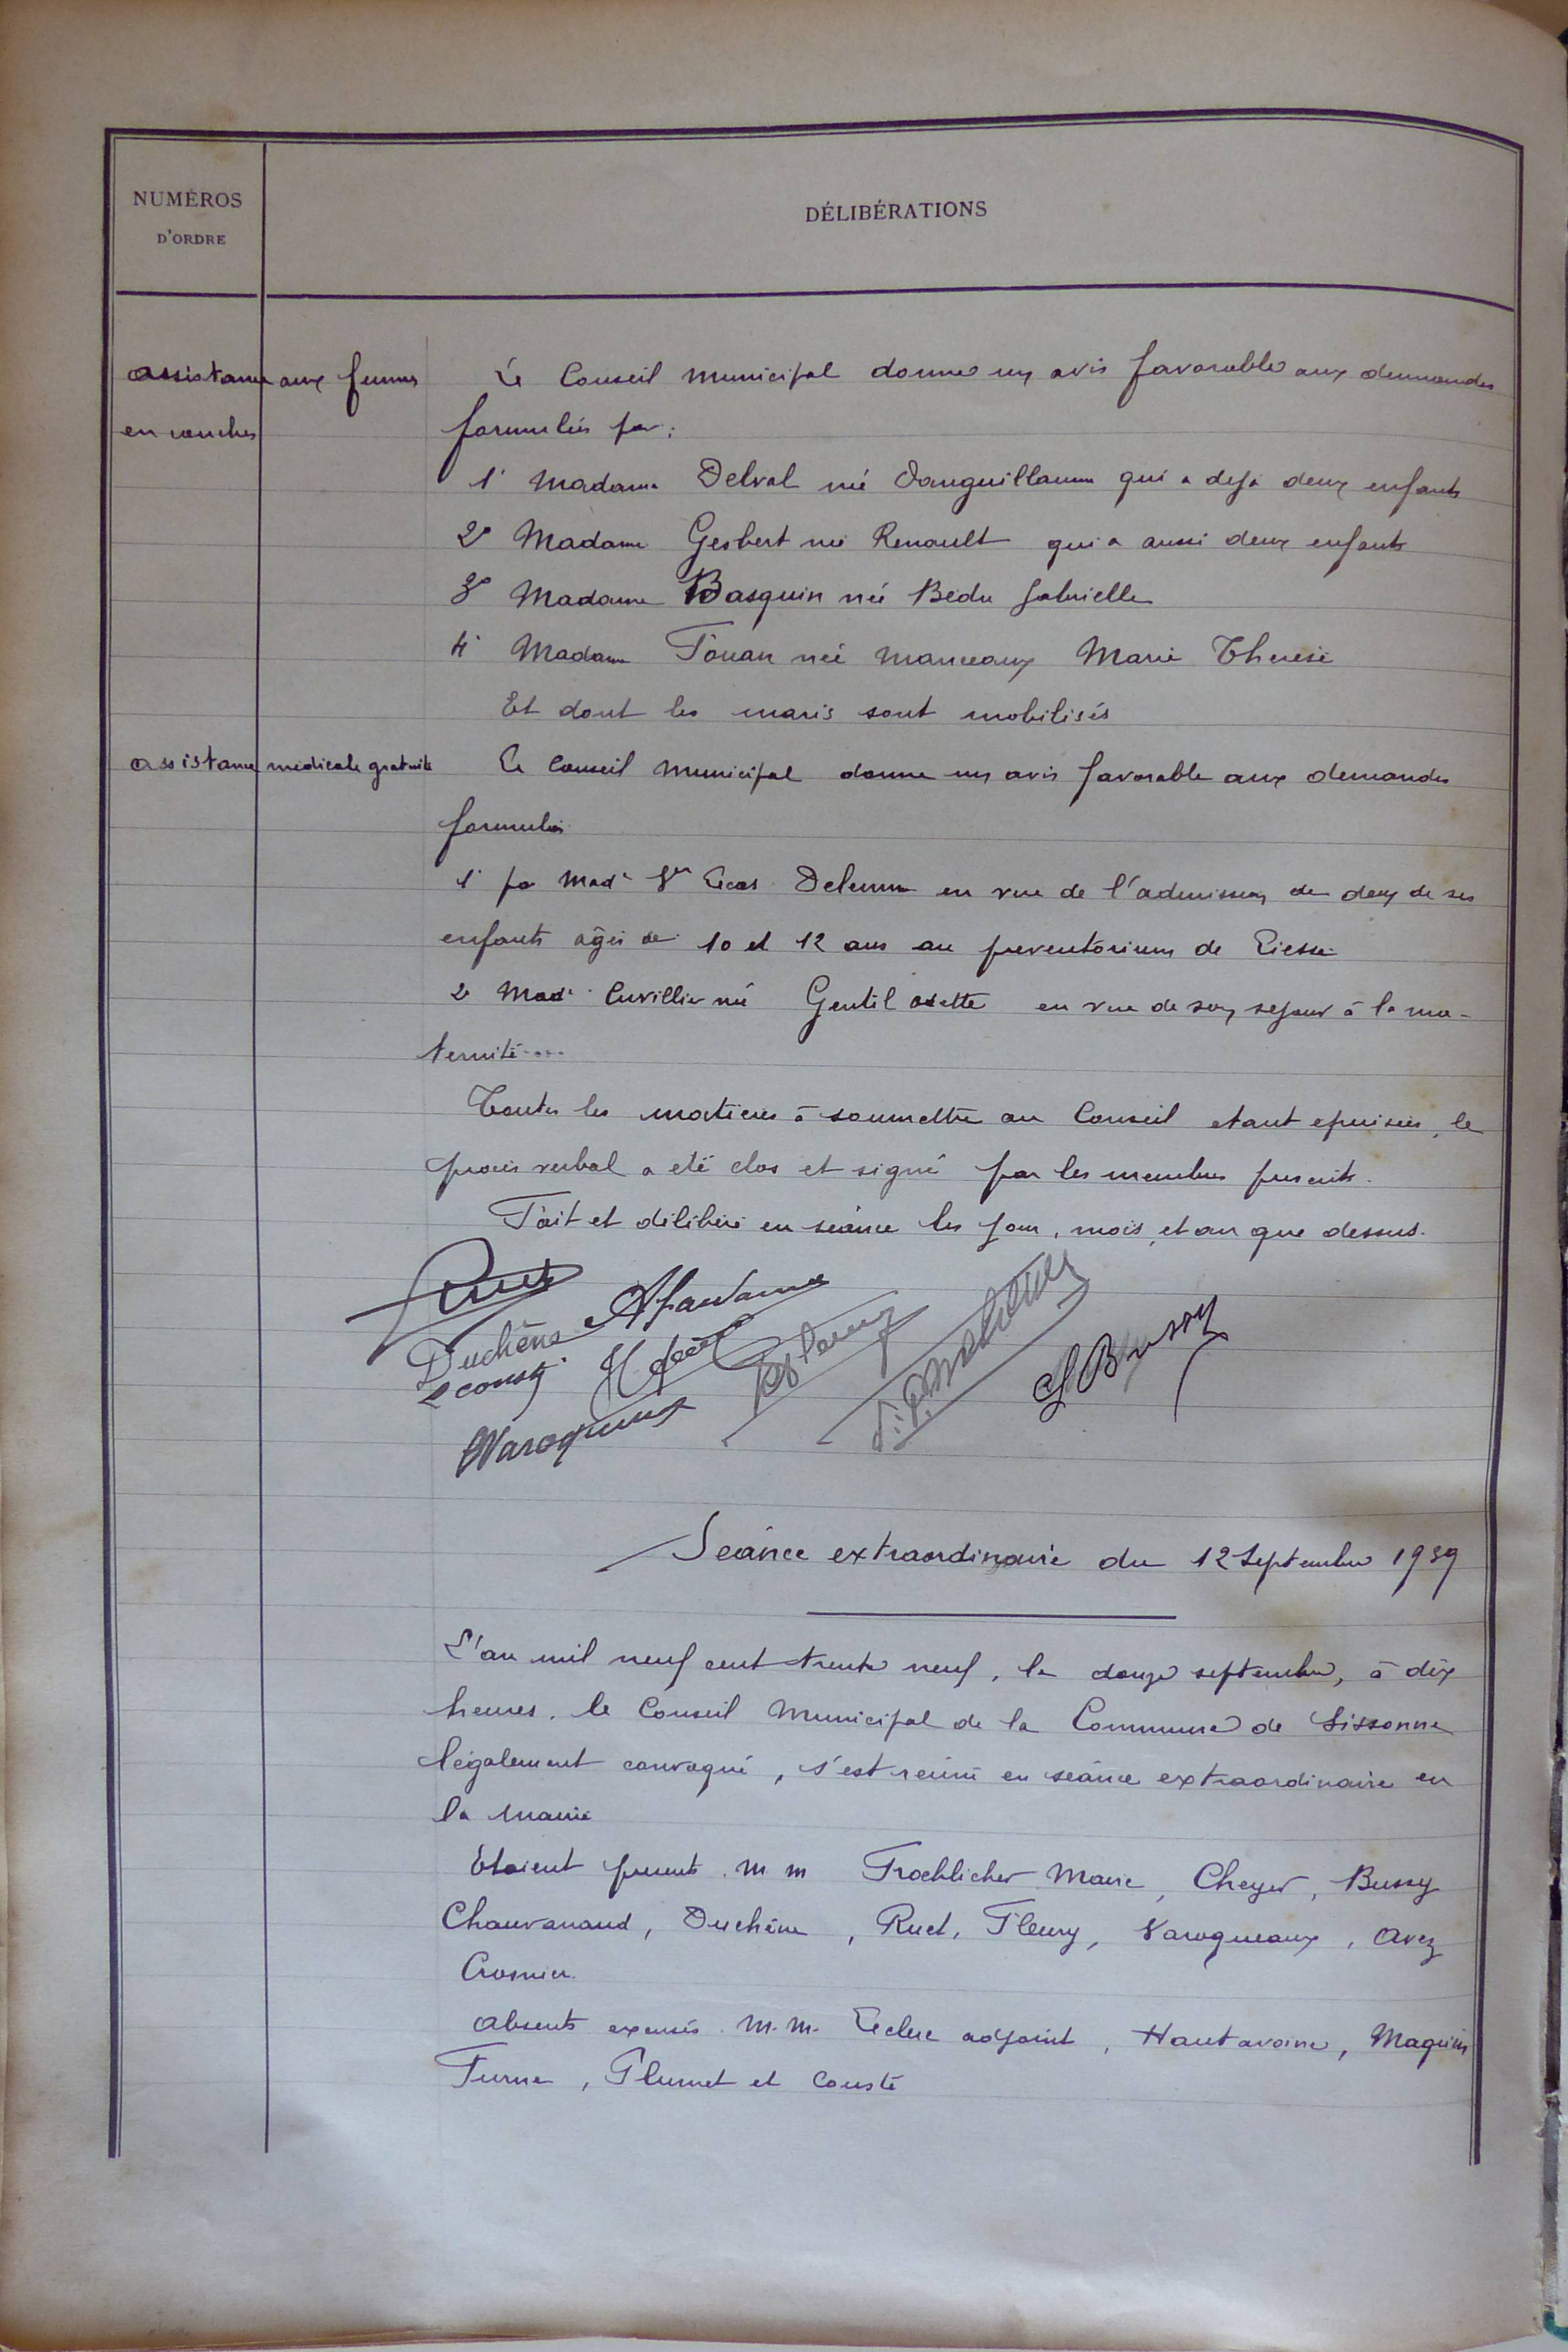 NUMÉROS
D'ORDRE
DÉLIBÉRATIONS
assistance aux femmes
en couches
Le Conseil municipal donne un avis favorable aux demandes
formulées par :
1° Madame Delval née Vauguillaume qui a deja deux enfants
2° Madame Gesbert née Renault qui a aussi deux enfants
3° Madame Basquin née Bedu Gabrielle
4° Madame Fouan née Manceaux Marie Therese
Et dont les maris sont mobilisés
assistance médicale gratuite
Le Conseil municipal donne un avis favorable aux demandes
formulées
1° par Made Vve Delemme en vue de l'admission de deux de ses
enfants agés de 10 et 12 ans au preventorium de Liesse
2° Made Cuvillier née Gentil odette en vue de son sejour à la ma-
ternité....
Toutes les matieres à soumettre au Conseil etant epuisées, le
procès verbal a eté clos et signé par les membres presents.
Fait et délibéré en séance les jour, mois, et an que dessus.
Duchêne
Leconsty
Varoqueaux
Bussy
Seance extraordinaire du 12 Septembre 1939
L'an mil neuf cent trente neuf, le douze septembre, à dix
heures, le Conseil Municipal de la Commune de Sissonne
légalement convoqué, s'est réuni en séance extraordinaire en
la mairie
Etaient presents M M Froehlicher Maire, Cheyer, Bussy
Chauvanaud, Duchêne, Ruet, Fleury, Varoqueaux, Avez
Crosnier.
Absents excusés M.M. Leclere adjoint, Hautavoine, Maquin
Turne, Plumet et Cousté